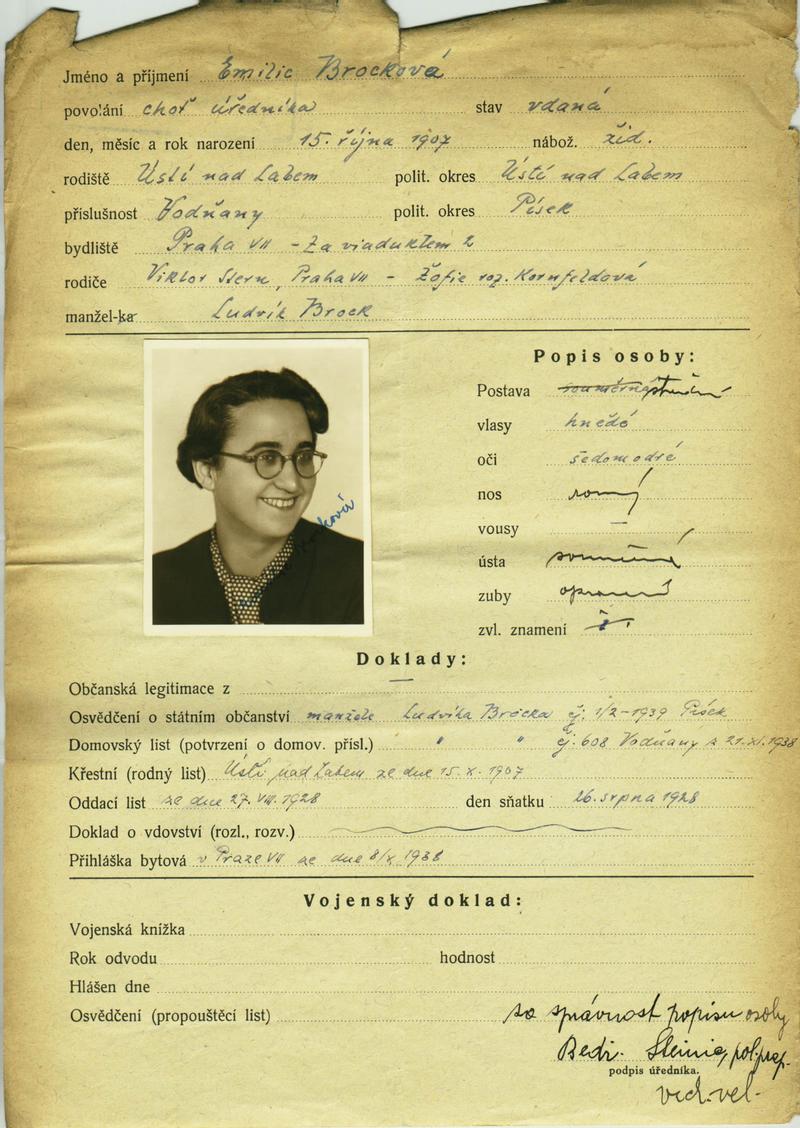 Jméno a příjmení Emilie Brocková
povolání choť úředníka stav vdaná
den, měsíc a rok narození 15. října 1907 nábož. žid.
rodiště Ústí nad Labem polit. okres Ústí nad Labem
příslušnost Vodňany polit. okres Písek
bydliště Praha VII - Za viaduktem 2
rodiče Viktor Stern, Praha VII - Žofie roz. Kornfeldová
manžel-ka Ludvík Brock
Popis osoby:
Postava souměrná střední
vlasy hnědé
oči šedomodré
nos rovný
vousy —
ústa souměrná
zuby
zvl. znamení
Brocková
Doklady:
Občanská legitimace z —
Osvědčení o státním občanství manžela Ludvíka Brocka čj. 1/2-1939 Písek
Domovský list (potvrzení o domov. přísl.) " " čj. 608 Vodňany z 21.XI.1938
Křestní (rodný list) Ústí nad Labem ze dne 15.X.1907
Oddací list ze dne 27.VIII.1928 den sňatku 26. srpna 1928
Doklad o vdovství (rozl., rozv.)
Přihláška bytová v Praze VII ze dne 8/X 1938
Vojenský doklad:
Vojenská knížka
Rok odvodu hodnost
Hlášen dne
Osvědčení (propouštěcí list)
za správnost popisu osoby
Bedř.
podpis úředníka.